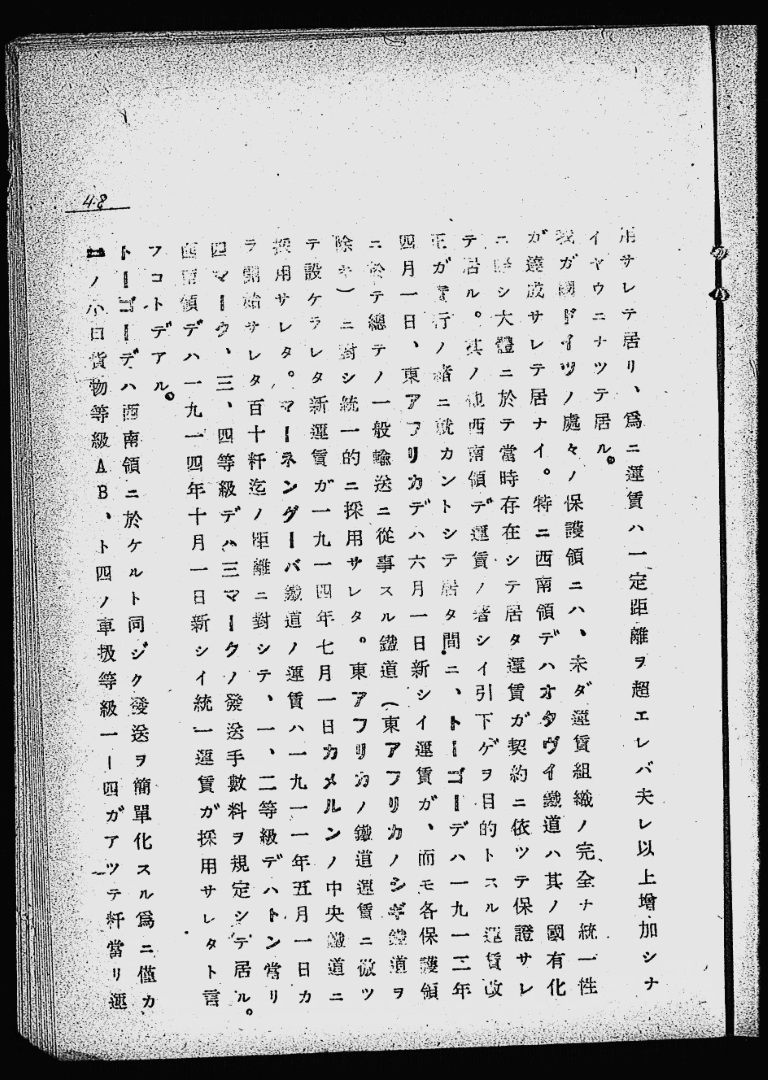 48
用サレテ居リ、爲ニ運賃ハ一定距離ヲ超エレバ夫レ以上增加シナ
イヤウニナツテ居ル。
我ガ國ドイツノ處々ノ保護領ニハ、未ダ運賃組織ノ完全ナ統一性
ガ達成サレテ居ナイ。特ニ西南領デハオタヴイ鐵道ハ其ノ國有化
ニ際シ大體ニ於テ當時存在シテ居タ運賃ガ契約ニ依ツテ保證サレ
テ居ル。其ノ他西南領デ運賃ノ著シイ引下ゲヲ目的トスル運賃改
正ガ實行ノ緒ニ就カントシテ居タ間ニ、トーゴーデハ一九一三年
四月一日、東アフリカデハ六月一日新シイ運賃ガ、而モ各保護領
ニ於テ總テノ一般輸送ニ從事スル鐵道（東アフリカノシギ鐵道ヲ
除キ）ニ對シ統一的ニ採用サレタ。東アフリカノ鐵道運賃ニ倣ツ
テ設ケラレタ新運賃ガ一九一四年七月一日カメルンノ中央鐵道ニ
採用サレタ。マーネングーバ鐵道ノ運賃ハ一九一一年五月一日カ
ラ開始サレタ百十粁迄ノ距離ニ對シテ、一、二等級デハトン當リ
四マーク、三、四等級デハ三マークノ發送手數料ヲ規定シテ居ル。
西南領デハ一九一四年十月一日新シイ統一運賃ガ採用サレタト言
フコトデアル。
トーゴーデハ西南領ニ於ケルト同ジク發送ヲ簡單化スル爲ニ僅カ
二ノ小口貨物等級AB、ト四ノ車扱等級一ー四ガアツテ粁當リ運